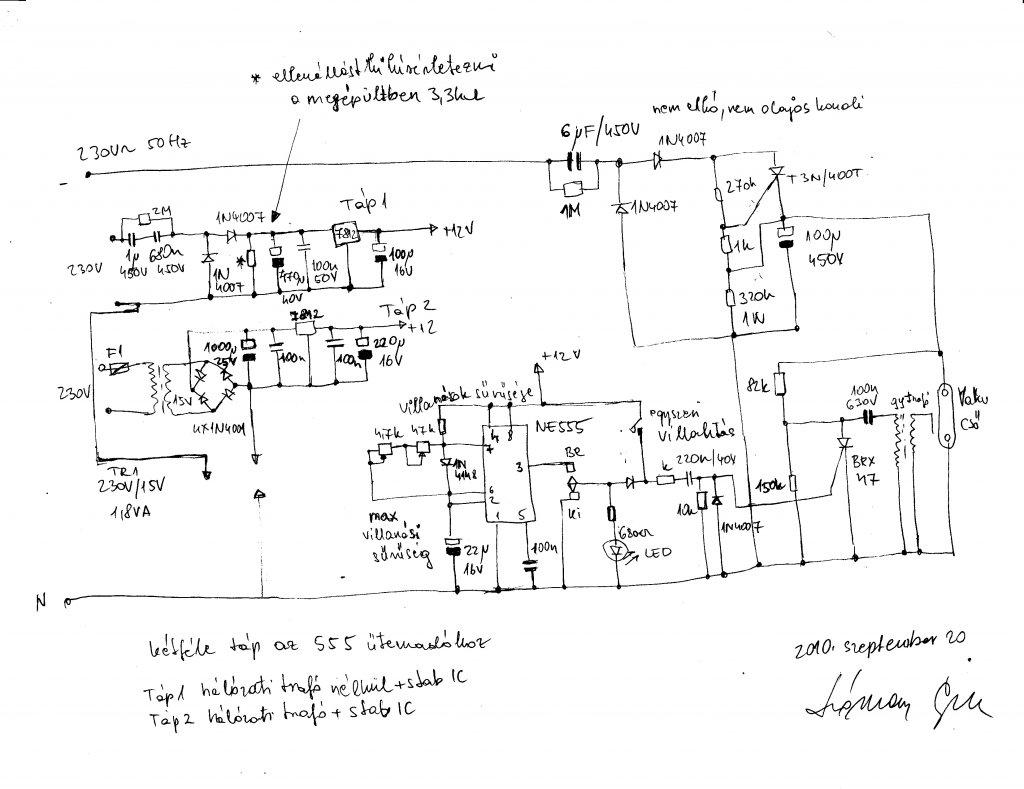 * ellenállást ki kisérletezni
a megépültben 3,3k
nem elkó, nem olajos kondi
230V~ 50Hz
6µF/450V
1N4007
1M
1N4007
270k
T3N/400T
1k
100µ
450V
320k
1W
2M
1N4007
Táp1
7812
+12V
1µ
450V
680n
450V
230V
1N
4007
*
470µ
40V
100n
50V
100µ
16V
7812
Táp 2
+12
F1
1000µ
25V
100n
100n
220µ
16V
230V
15V
4x1N4001
TR1
230V/15V
1,8VA
+12V
villanások sűrűsége
47k
47k
4
8
NE555
7
1N
4148
3
6
2
1
5
BE
ki
max
villanási
sűrűség
22µ
16V
100n
egyszeri
villantás
k
220n/40V
10k
1N4007
680Ω
LED
82k
100n
630V
gytrafó
Vaku
Cső
150k
BRX
47
N
kétféle táp az 555 ütemadóhoz
Táp1 hálózati trafó nélkül + stab IC
Táp2 hálózati trafó + stab IC
2010. szeptember 20.